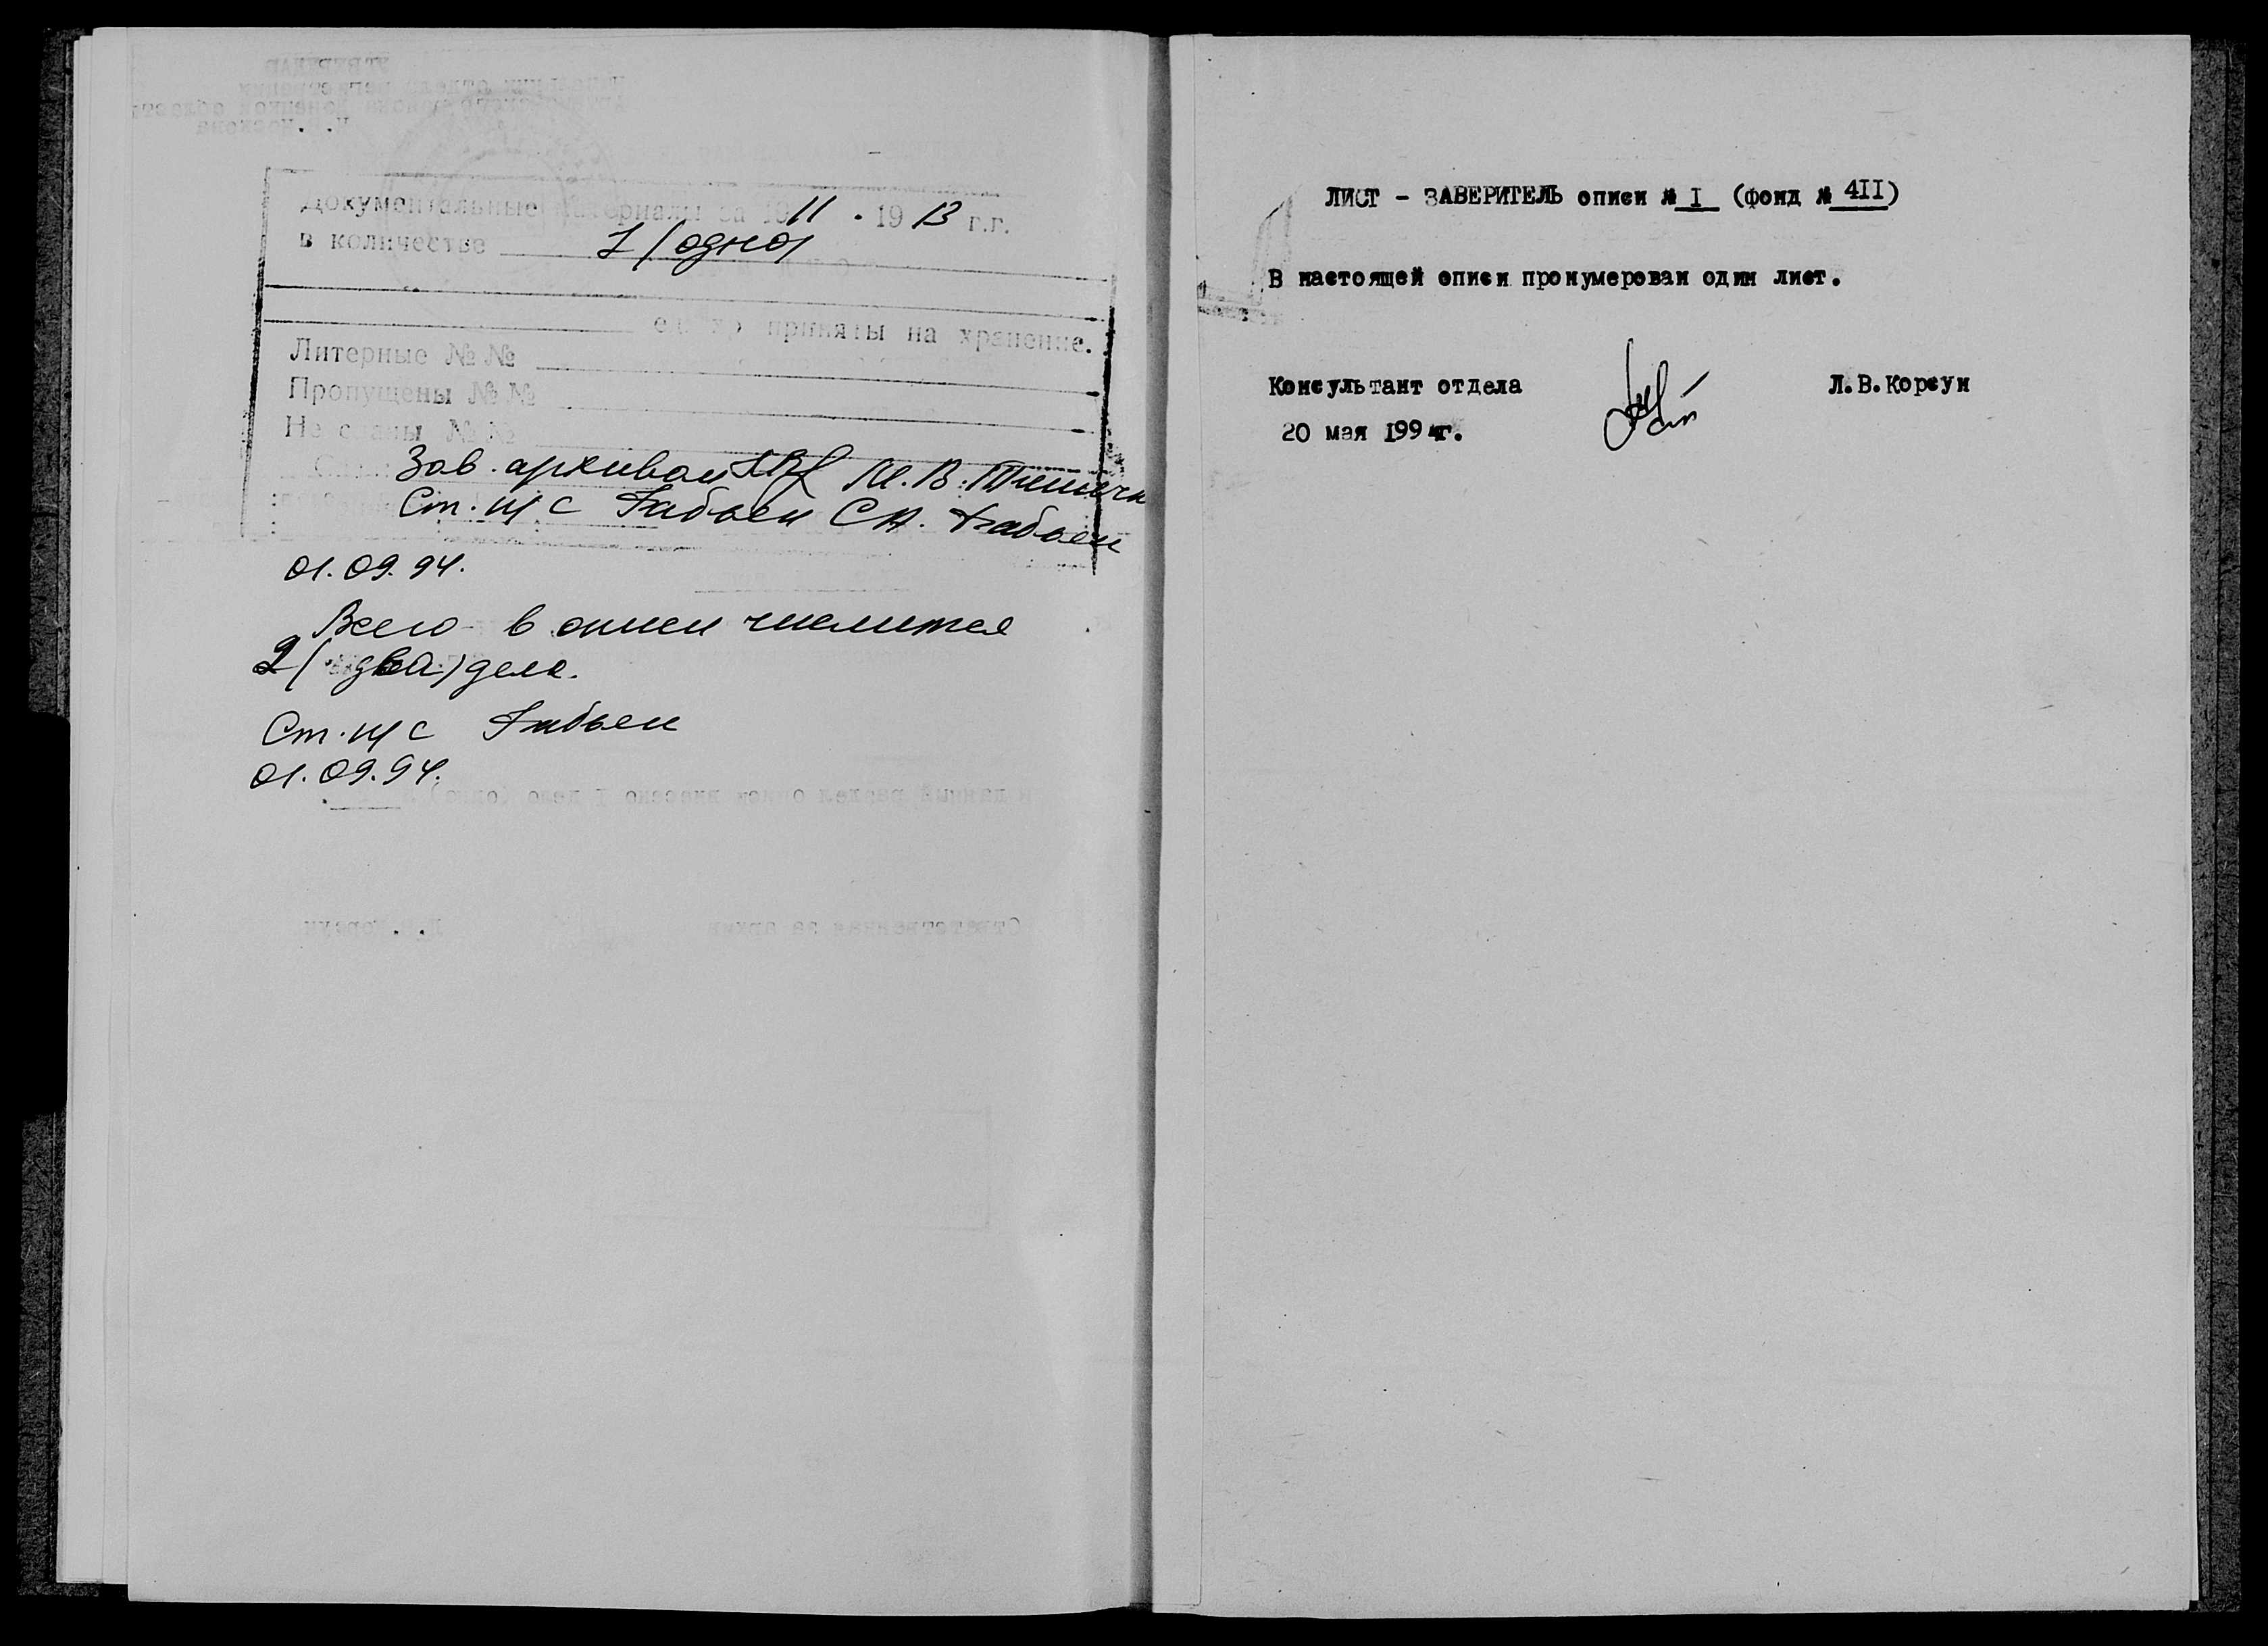 Документальные материалы за 1911 - 1913 г.г.
в количестве 1 (одно)
приняты на хранение.
Литерные №№
Пропущены №№
Не сданы №№
Зав. архивом М.В.
Ст. н/с С.А.
01.09.94.
Всего в описи числится
2 (два) дела.
Ст. н/с
01.09.94.
ЛИСТ - ЗАВЕРИТЕЛЬ описи № I (фонд № 4II)
В настоящей описи пронумерован один лист.
Консультант отдела Л.В.Корсун
20 мая 1994г.